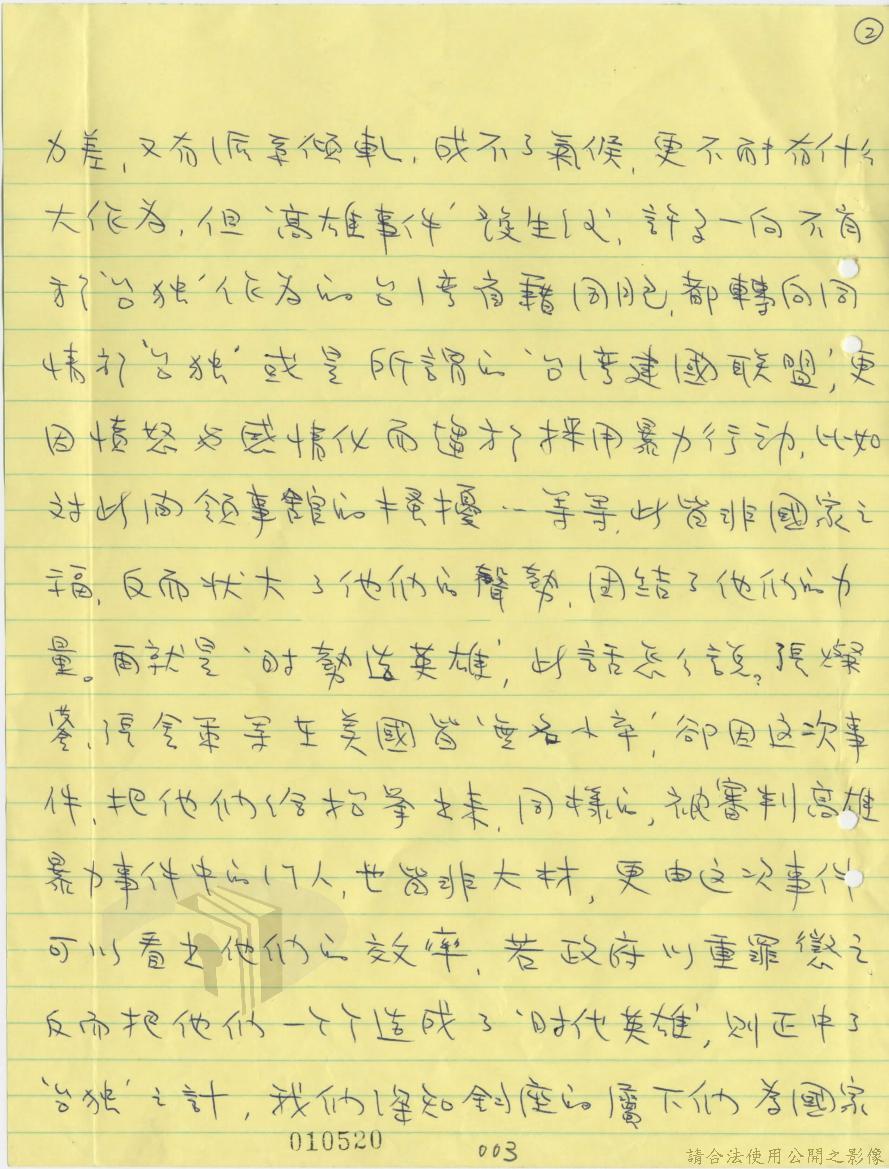 ②
力差，又有派系傾軋，成不了氣候，更不可能有什么
大作為，但“高雄事件”發生後，許多一向不肯
於“台独”作為的台湾省籍同胞，都轉向同
情於“台独”或是所謂的“台湾建國联盟”，更
因憤怒与感情化而趨於採用暴力行动，比如
对此间領事館的搔擾…等等，此皆非國家之
福，反而状大了他們的聲勢，团結了他們的力
量。再就是“时勢造英雄”，此話怎么說？張燦
鍙、張金策等在美國皆“無名小卒”，卻因这次事
件，把他們给抬舉出来，同樣的，被審判高雄
暴力事件中的17人，也皆非大材，更由这次事件
可以看出他們的效率，若政府以重罪懲之
反而把他們一个个造成了“时代英雄”，則正中了
“台独”之計，我們深知鈞座的屬下們為國家
010520
003
請合法使用公開之影像